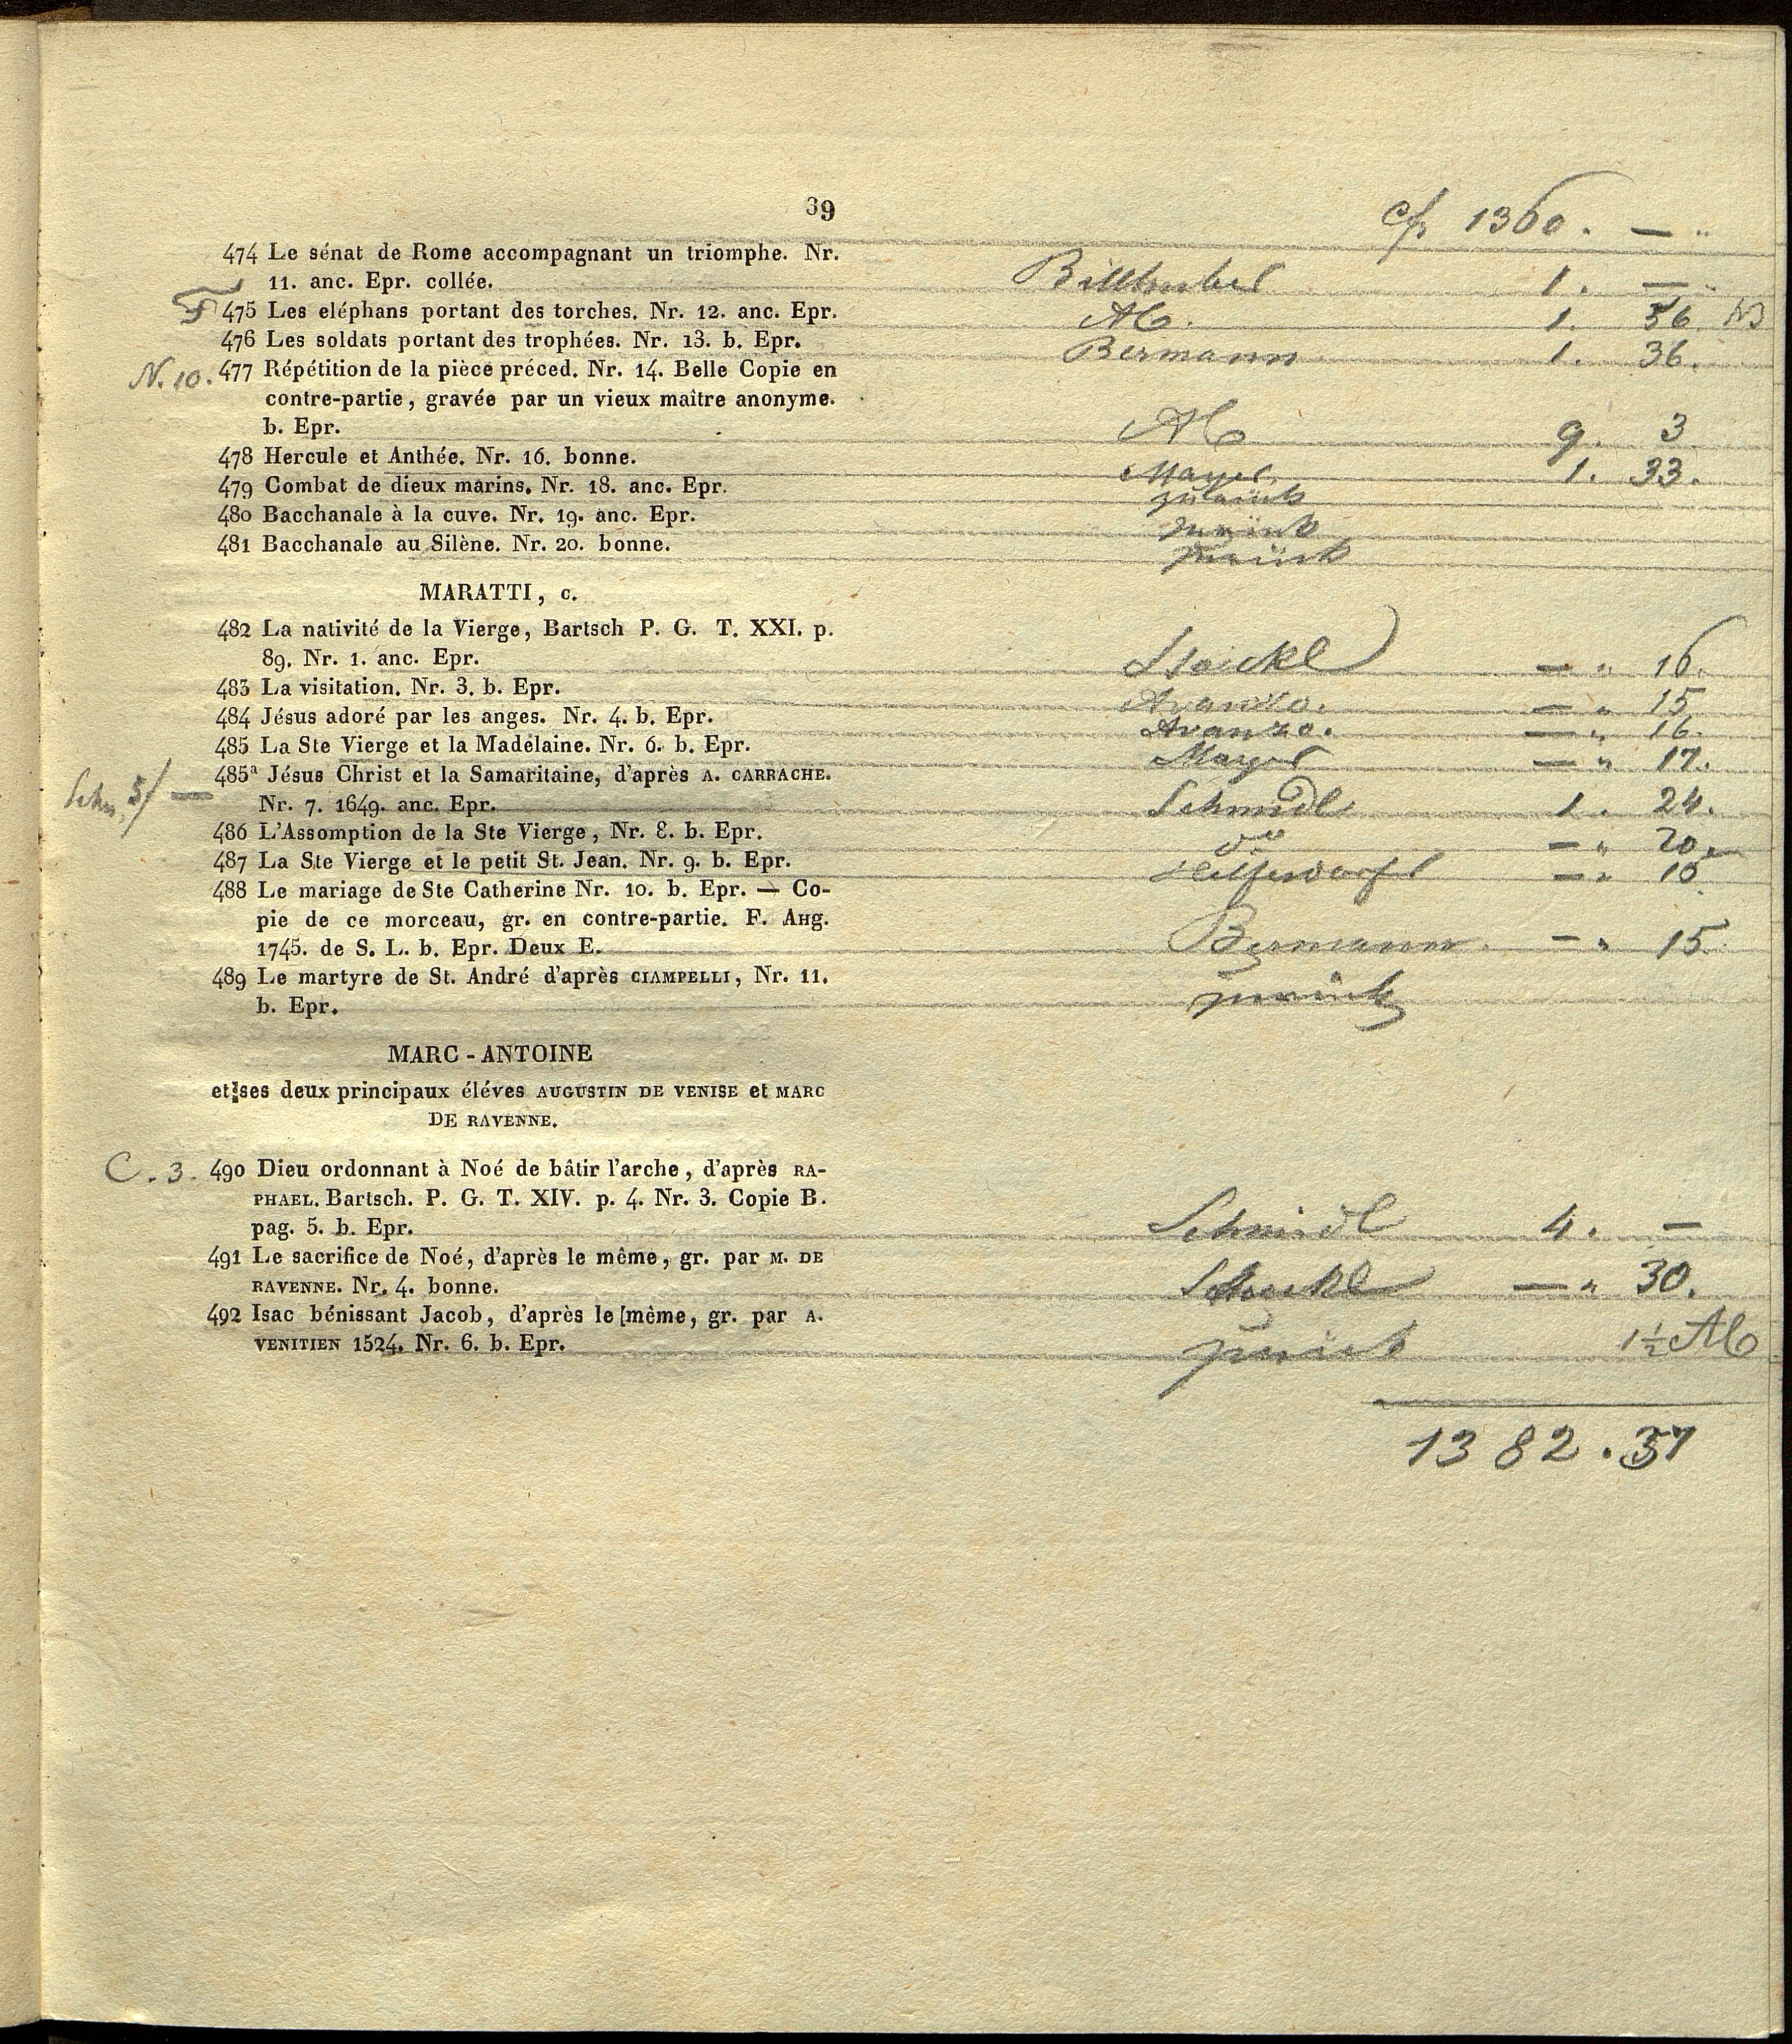 39
cfr 1360. — "
474 Le sénat de Rome accompagnant un triomphe. Nr.
11. anc. Epr. collée. Billhuber 1. —
475 Les eléphans portant des torches. Nr. 12. anc. Epr. 1. 56
476 Les soldats portant des trophées. Nr. 13. b. Epr. Bermann 1. 36.
N. 10. 477 Répétition de la pièce préced. Nr. 14. Belle Copie en
contre-partie, gravée par un vieux maître anonyme.
b. Epr. 9. 3
478 Hercule et Anthée. Nr. 16. bonne. Mayer 1. 33.
479 Combat de dieux marins. Nr. 18. anc. Epr. zurück
480 Bacchanale à la cuve. Nr. 19. anc. Epr. zurück
481 Bacchanale au Silène. Nr. 20. bonne. zurück
MARATTI, C.
482 La nativité de la Vierge, Bartsch P. G. T. XXI. p.
89. Nr. 1. anc. Epr. Stöckl — " 16.
483 La visitation. Nr. 3. b. Epr. Avanzo. — " 15
484 Jésus adoré par les anges. Nr. 4. b. Epr. Avanzo. — " 16.
485 La Ste Vierge et la Madelaine. Nr. 6. b. Epr. Mayer — " 17.
485ª Jésus Christ et la Samaritaine, d'après A. CARRACHE.
Schm. 3/ — Nr. 7. 1649. anc. Epr. Schmidl 1. 24.
486 L'Assomption de la Ste Vierge, Nr. 8. b. Epr. do — " 20.
487 La Ste Vierge et le petit St. Jean. Nr. 9. b. Epr. — "
488 Le mariage de Ste Catherine Nr. 10. b. Epr. — Co-
pie de ce morceau, gr. en contre-partie. F. AHg.
1745. de S. L. b. Epr. Deux E. Bermann. — " 15.
489 Le martyre de St. André d'après CIAMPELLI, Nr. 11.
b. Epr. zurück
MARC-ANTOINE
et ses deux principaux éléves AUGUSTIN DE VENISE et MARC
DE RAVENNE.
C. 3. 490 Dieu ordonnant à Noé de bâtir l'arche, d'après RA-
PHAEL. Bartsch. P. G. T. XIV. p. 4. Nr. 3. Copie B.
pag. 5. b. Epr. Schmidl 4. —
491 Le sacrifice de Noé, d'après le même, gr. par M. DE
RAVENNE. Nr. 4. bonne. Stöckl — " 30.
492 Isac bénissant Jacob, d'après le [même, gr. par A.
VENITIEN 1524. Nr. 6. b. Epr. zurück 1½
1382.37